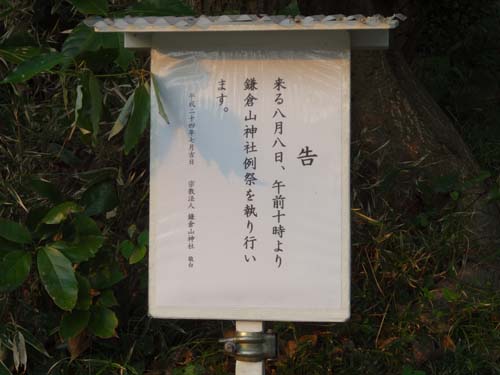 告
来る八月八日、午前十時より
鎌倉山神社例祭を執り行い
ます。
平成二十四年七月吉日　宗教法人 鎌倉山神社 敬白